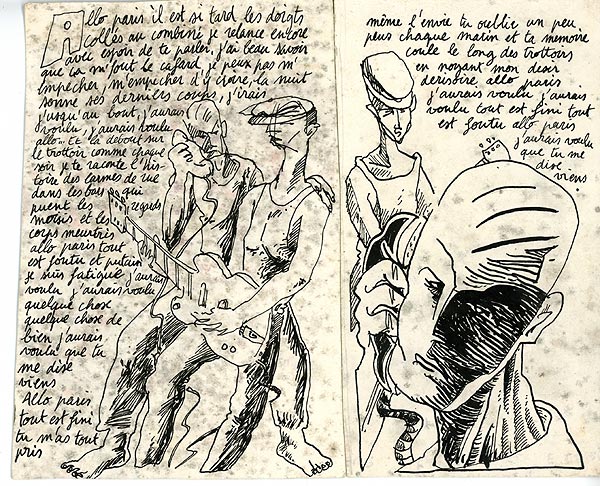 Allo paris il est si tard les doigts
collés au combiné je relance encore
avec espoir de te parler, j'ai beau savoir
que ça m'fout le cafard, je peux pas m'
empêcher, m'empêcher d'y croire, la nuit
sonne ses derniers coups, j'irais
jusqu'au bout, j'aurais
voulu, j'aurais voulu
allo... Et là debout sur
le trottoir comme chaque
soir je te raconte l'his
toire des larmes de rue
dans les bars qui
puent les regards
moisis et les
corps meurtris
allo paris tout
est foutu et putain
je suis fatigué j'aurais
voulu j'aurais voulu
quelque chose
quelque chose de
bien j'aurais
voulu que tu
me dise
viens
Allo paris
tout est fini
tu m'as tout
pris
même l'envie tu oublie un peu
plus chaque matin et ta mémoire
coule le long des trottoirs
en noyant mon
dérisoire allo paris
j'aurais voulu j'aurais
voulu tout est fini tout
est foutu allo paris
j'aurais voulu
que tu me
dise
viens.